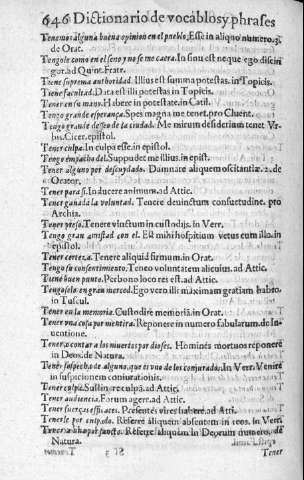 646 Dictionario de vocablos y phrases
Tenemos alguna buena opinion en el pueblo, Esse in aliquo numero. 3.
de Orat.
Tengole como en el seno y no se me caera. In sinu est neque ego discin
gor. ad Quint. Fratr.
Tiene suprema authoridad. Illius est summa potestas. in Topicis.
Tiene facultad. Data est illi potestas in Topicis.
Tener en su mano. Habere in potestate. in Catil.
Tengo grande esperança. Spes magna me tenet. pro Cluent.
Tengo grande desseo de la ciudad. Me mirum desiderium tenet Vr-
bis. Cicer. epistol.
Tener culpa. In culpa esse. in epistol.
Tengo empacho del. Suppudet me illius. in epist.
Tener alguno por descuydado. Damnare aliquem oscitantiæ. 2. de
Orator.
Tener para si. Inducere animum. ad Attic.
Tener ganada la voluntad. Tenere deuinctum consuetudine. pro
Archia.
Tener preso. Tenere vinctum in custodijs. in Verr.
Tengo gran amistad con el. Est mihi hospitium vetus cum illo. in
epistol.
Tener certeza. Tenere aliquid firmum. in Orat.
Tengo su consentimiento. Teneo voluntatem alicuius. ad Attic.
Tiene buen punto. Per bono loco res est. ad Attic.
Tengoselo en gran merced. Ego vero illi maximam gratiam habeo.
in Tuscul.
Tener en la memoria. Custodire memoria. in Orat.
Tener vna cosa por mentira. Reponere in numero fabularum. de In-
uentione.
Tener o contar a los muertos por dioses. Homines mortuos reponere
in Deos. de Natura.
Tener sospecha de alguno, que es vno de los conjurados. In Verr. Venire
in suspicionem coniurationis.
Tener culpa. Sustinere culpam. ad Attic.
Tener audiencia. Forum agere. ad Attic.
Tener fuerças efficaces. Præsentes vires habere. ad Att.
Tenerle por culpado. Referre aliquem absentem in reos. in Verr.
Referre aliquem in Deorum numero. de
Natura.
Sf 3 Tener